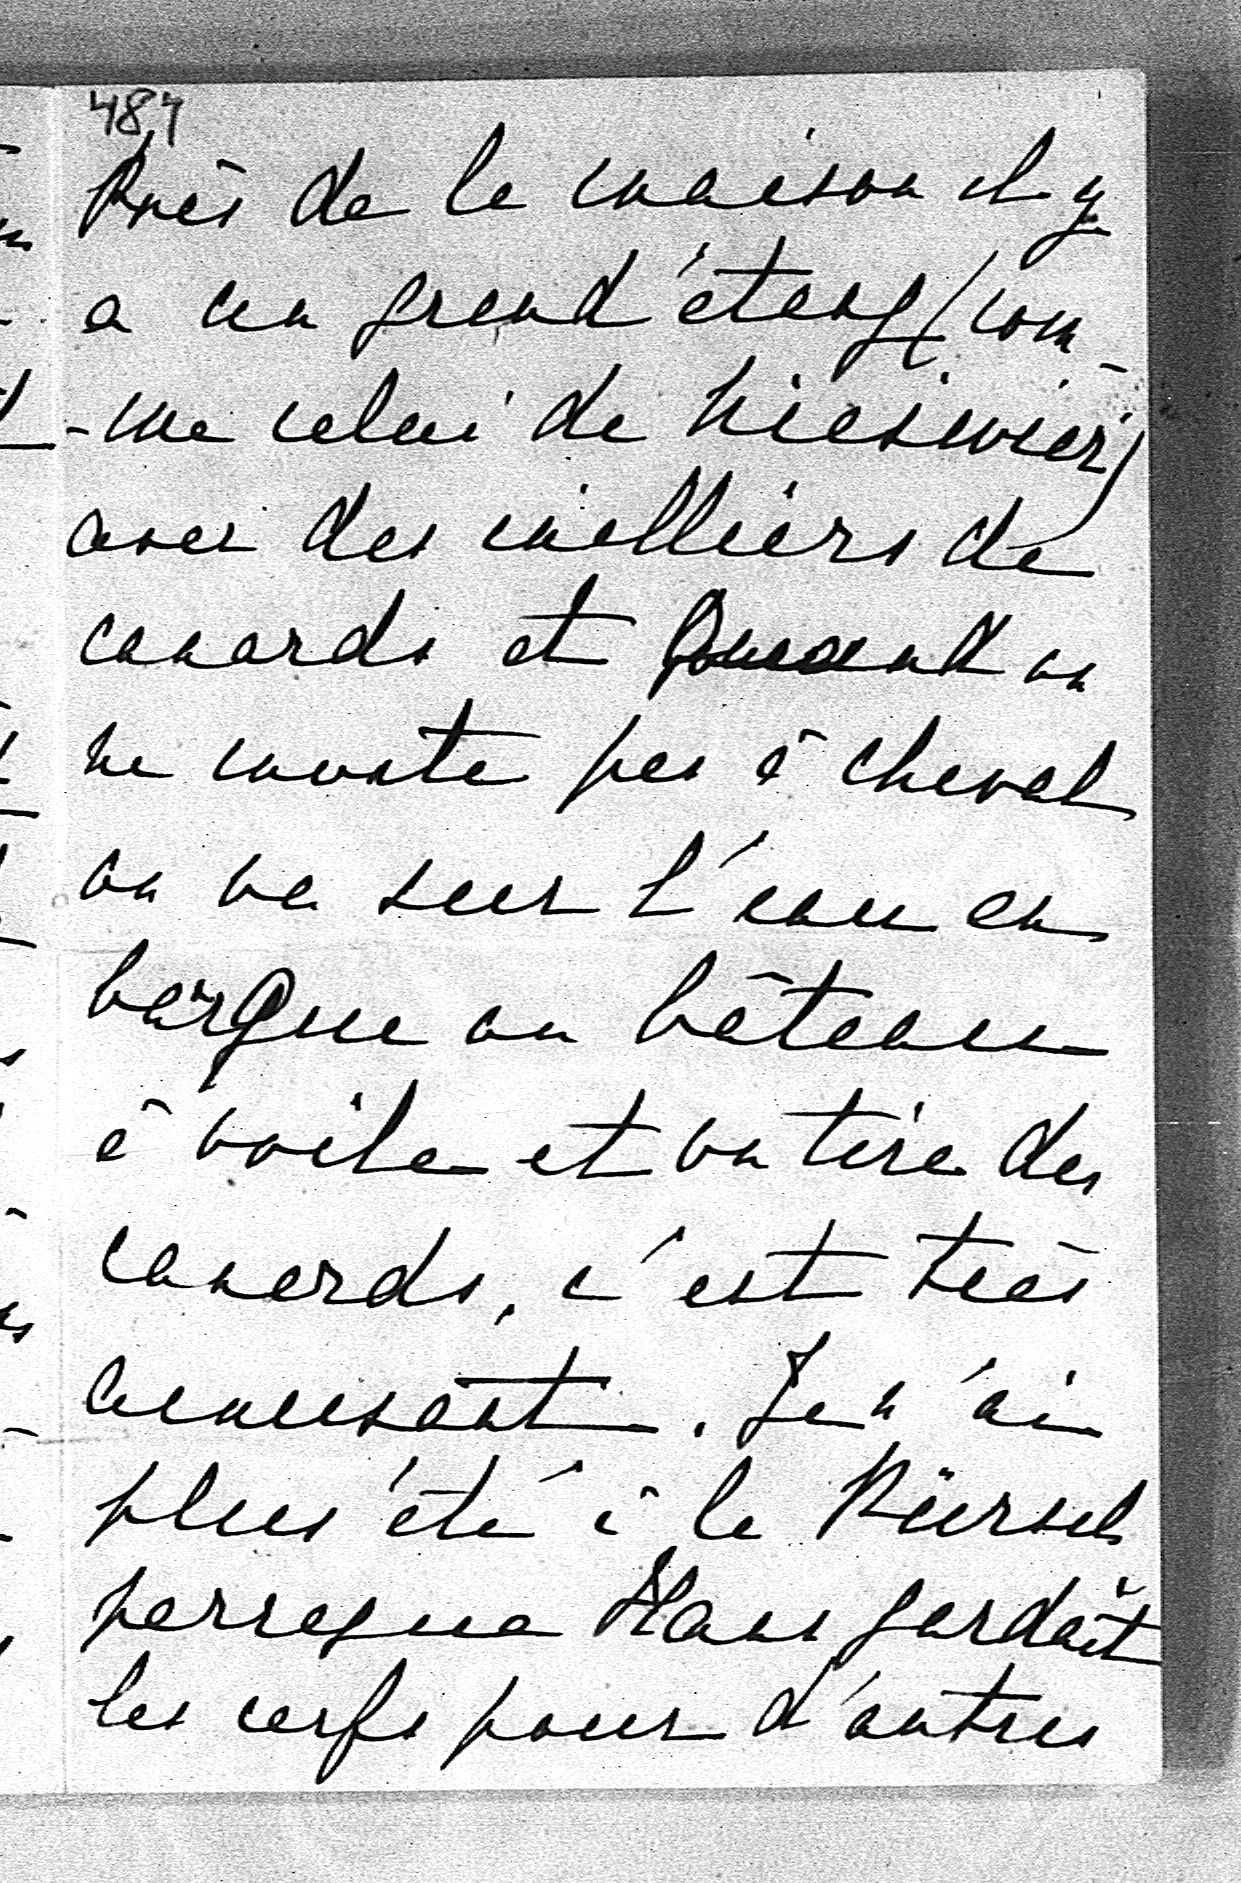 484
Près de la maison il y
a un grand étang (com-
-me celui de Niesivier)
avec des milliers de
canards et Quand on
ne monte pas à cheval
on va sur l'eau en
barque ou bâteau
à voile et on tire des
canards, c'est très
amusant. Je n'ai
plus été à la Pürsch
parceque Hans gardait
les cerfs pour d'autres